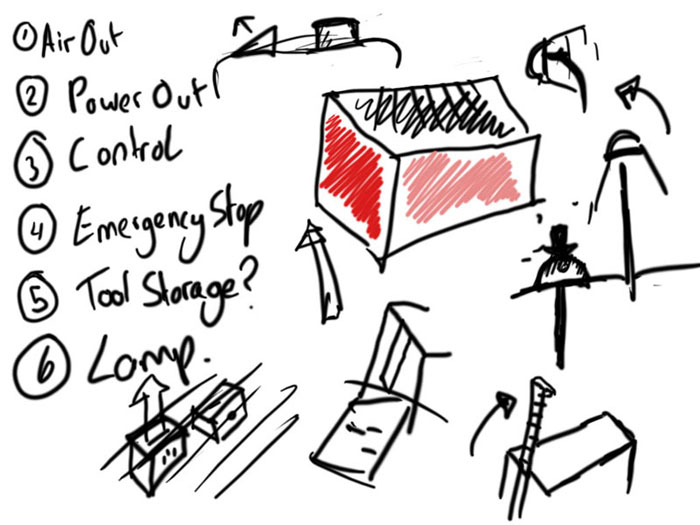 1 Air Out
2 Power Out
3 Control
4 Emergency Stop
5 Tool Storage?
6 Lamp.